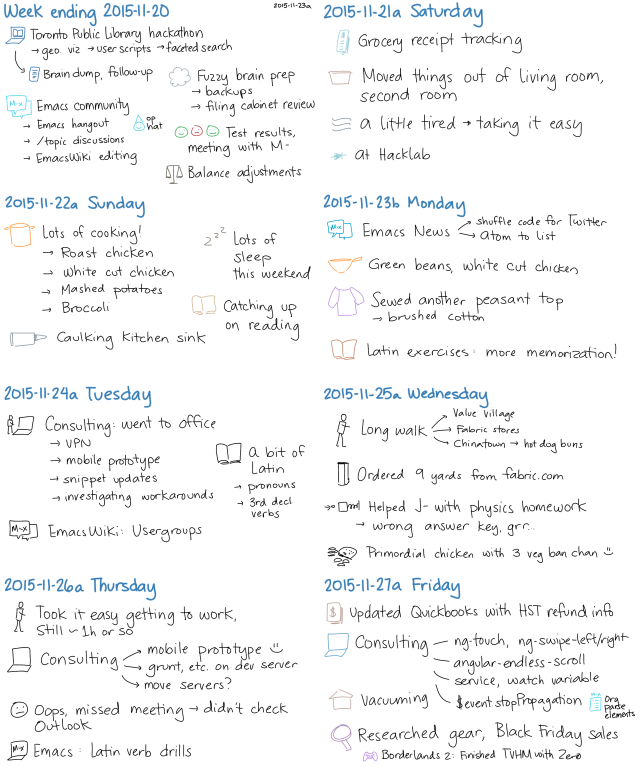 Week ending 2015-11-20
2015-11-23a
Toronto Public Library hackathon
→ geo. viz → user scripts → faceted search
Brain dump, follow-up
Fuzzy brain prep
→ backups
→ filing cabinet review
M-x
Emacs community
→ Emacs hangout
→ /topic discussions
→ EmacsWiki editing
Test results,
meeting with M-
Balance adjustments
2015-11-21a Saturday
Grocery receipt tracking
Moved things out of living room,
second room
a little tired → taking it easy
at Hacklab
2015-11-22a Sunday
Lots of cooking!
→ Roast chicken
→ White cut chicken
→ Mashed potatoes
→ Broccoli
Caulking kitchen sink
zzz
Lots of
sleep
this weekend
Catching up
on reading
2015-11-23b Monday
M-x
Emacs News
→ shuffle code for Twitter
→ atom to list
Green beans, white cut chicken
Sewed another peasant top
→ brushed cotton
Latin exercises: more memorization!
2015-11-24a Tuesday
Consulting: went to office
→ VPN
→ mobile prototype
→ snippet updates
→ investigating workarounds
A bit of
Latin
→ pronouns
→ 3rd decl
verbs
M-x
EmacsWiki: Usergroups
2015-11-25a Wednesday
Long walk
→ Value Village
→ Fabric stores
→ Chinatown → hot dog buns
Ordered 9 yards from fabric.com
Helped J- with physics homework
→ wrong answer key, grr...
Primordial chicken with 3 veg ban chan
2015-11-26a Thursday
Took it easy getting to work,
still ~ 1h or so
Consulting
→ mobile prototype
→ grunt, etc. on dev server
→ move servers?
Oops, missed meeting → didn't check
Outlook
M-x
Emacs: Latin verb drills
2015-11-27a Friday
$
Updated Quickbooks with HST refund info
Consulting
ng-touch, ng-swipe-left/right
angular-endless-scroll
service, watch variable
$event.stopPropagation
Vacuuming
M-x
Org
paste
elements
Researched gear, Black Friday sales
Borderlands 2: Finished TVHM with Zero